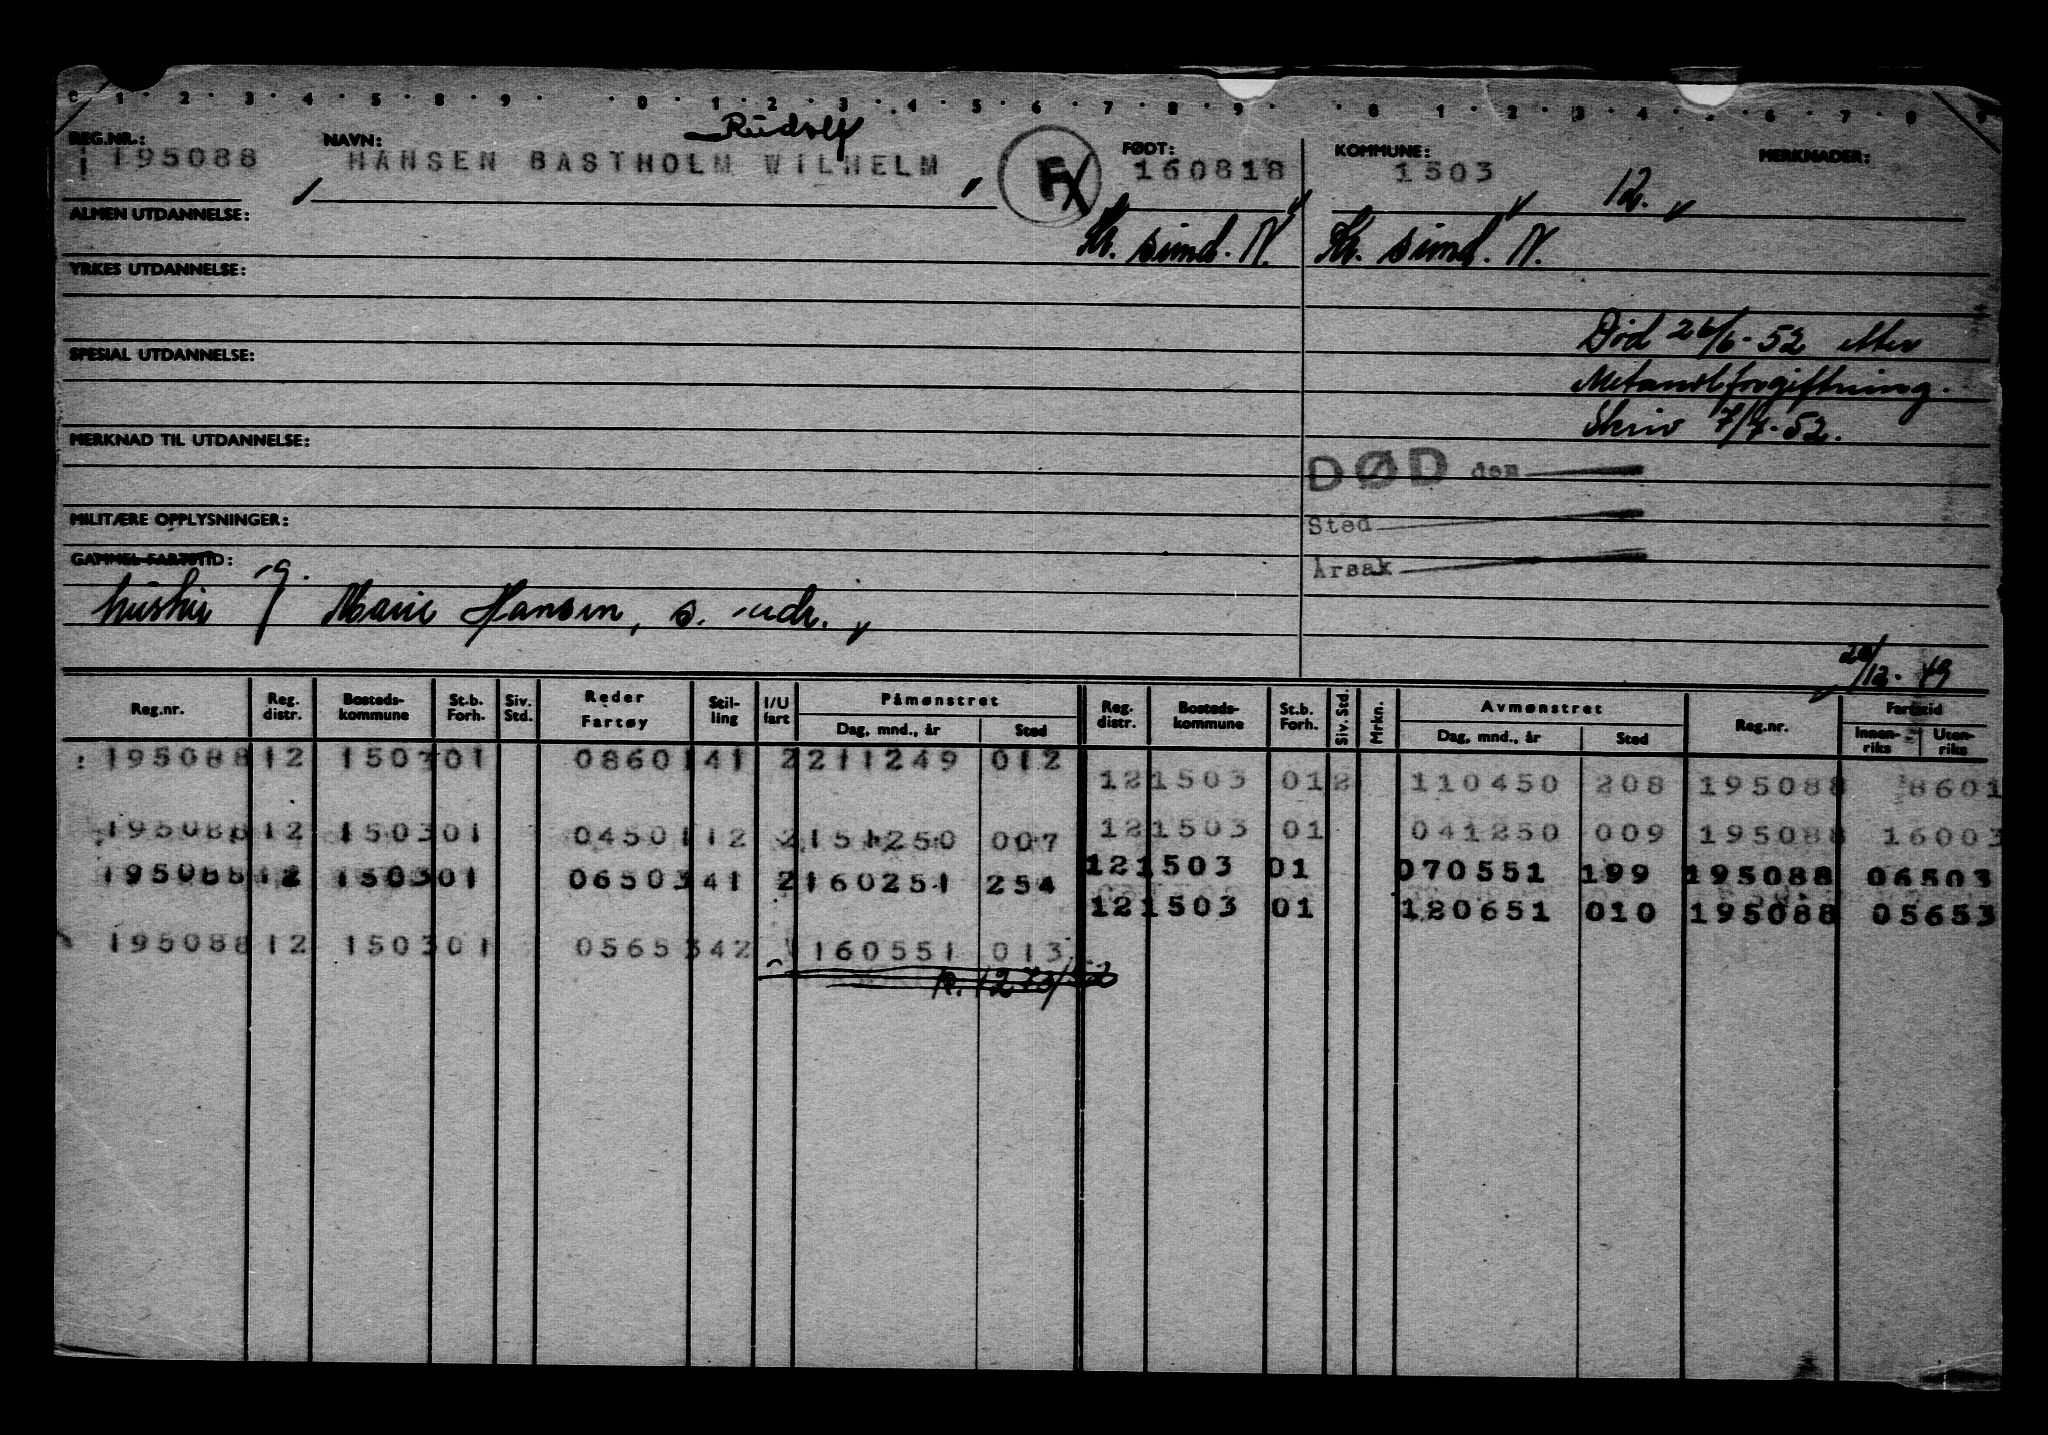 0 1 2 3 4 5 8 9 0 1 2 3 4 5 6 7 8 9 0 1 2 3 4 5 6 7 8 9
REG.NR.: NAVN: Rudolf FØDT: KOMMUNE: MERKNADER:
195088 HANSEN BASTHOLM WILHELM F 160818 1503 12.
ALMEN UTDANNELSE: Kr. sund. N. Kr. sund. N.
YRKES UTDANNELSE:
Død 26/6-52 etter
SPESIAL UTDANNELSE:
Metanolforgiftning.
Skriv 7/7-52.
MERKNAD TIL UTDANNELSE:
DØD den
MILITÆRE OPPLYSNINGER:
Sted
GAMMEL FARTSTID:
Årsak
Marie Hansen, s. adr.
20/12-49
Reg.nr. Reg. distr. Bosteds-kommune St.b. Forh. Siv. Std. Reder Fartøy Stil-ling I/U fart Påmønstret Dag, mnd., år Sted Reg. distr. Bosteds-kommune St.b. Forh. Siv. Std. Mrkn. Avmønstret Dag, mnd., år Sted Reg.nr. Fartstid Innen-riks Uten-riks
195088 12 1503 01 08601 41 2 211249 012
12 1503 01 2 110450 208 195088 8601
195088 12 1503 01 04501 12 2 151250 007
12 1503 01 041250 009 195088 16003
195088 12 1503 01 06503 41 2 160251 254
12 1503 01 070551 199 195088 06503
12 1503 01 120651 010 195088 05653
195088 12 1503 01 05653 42 160551 013